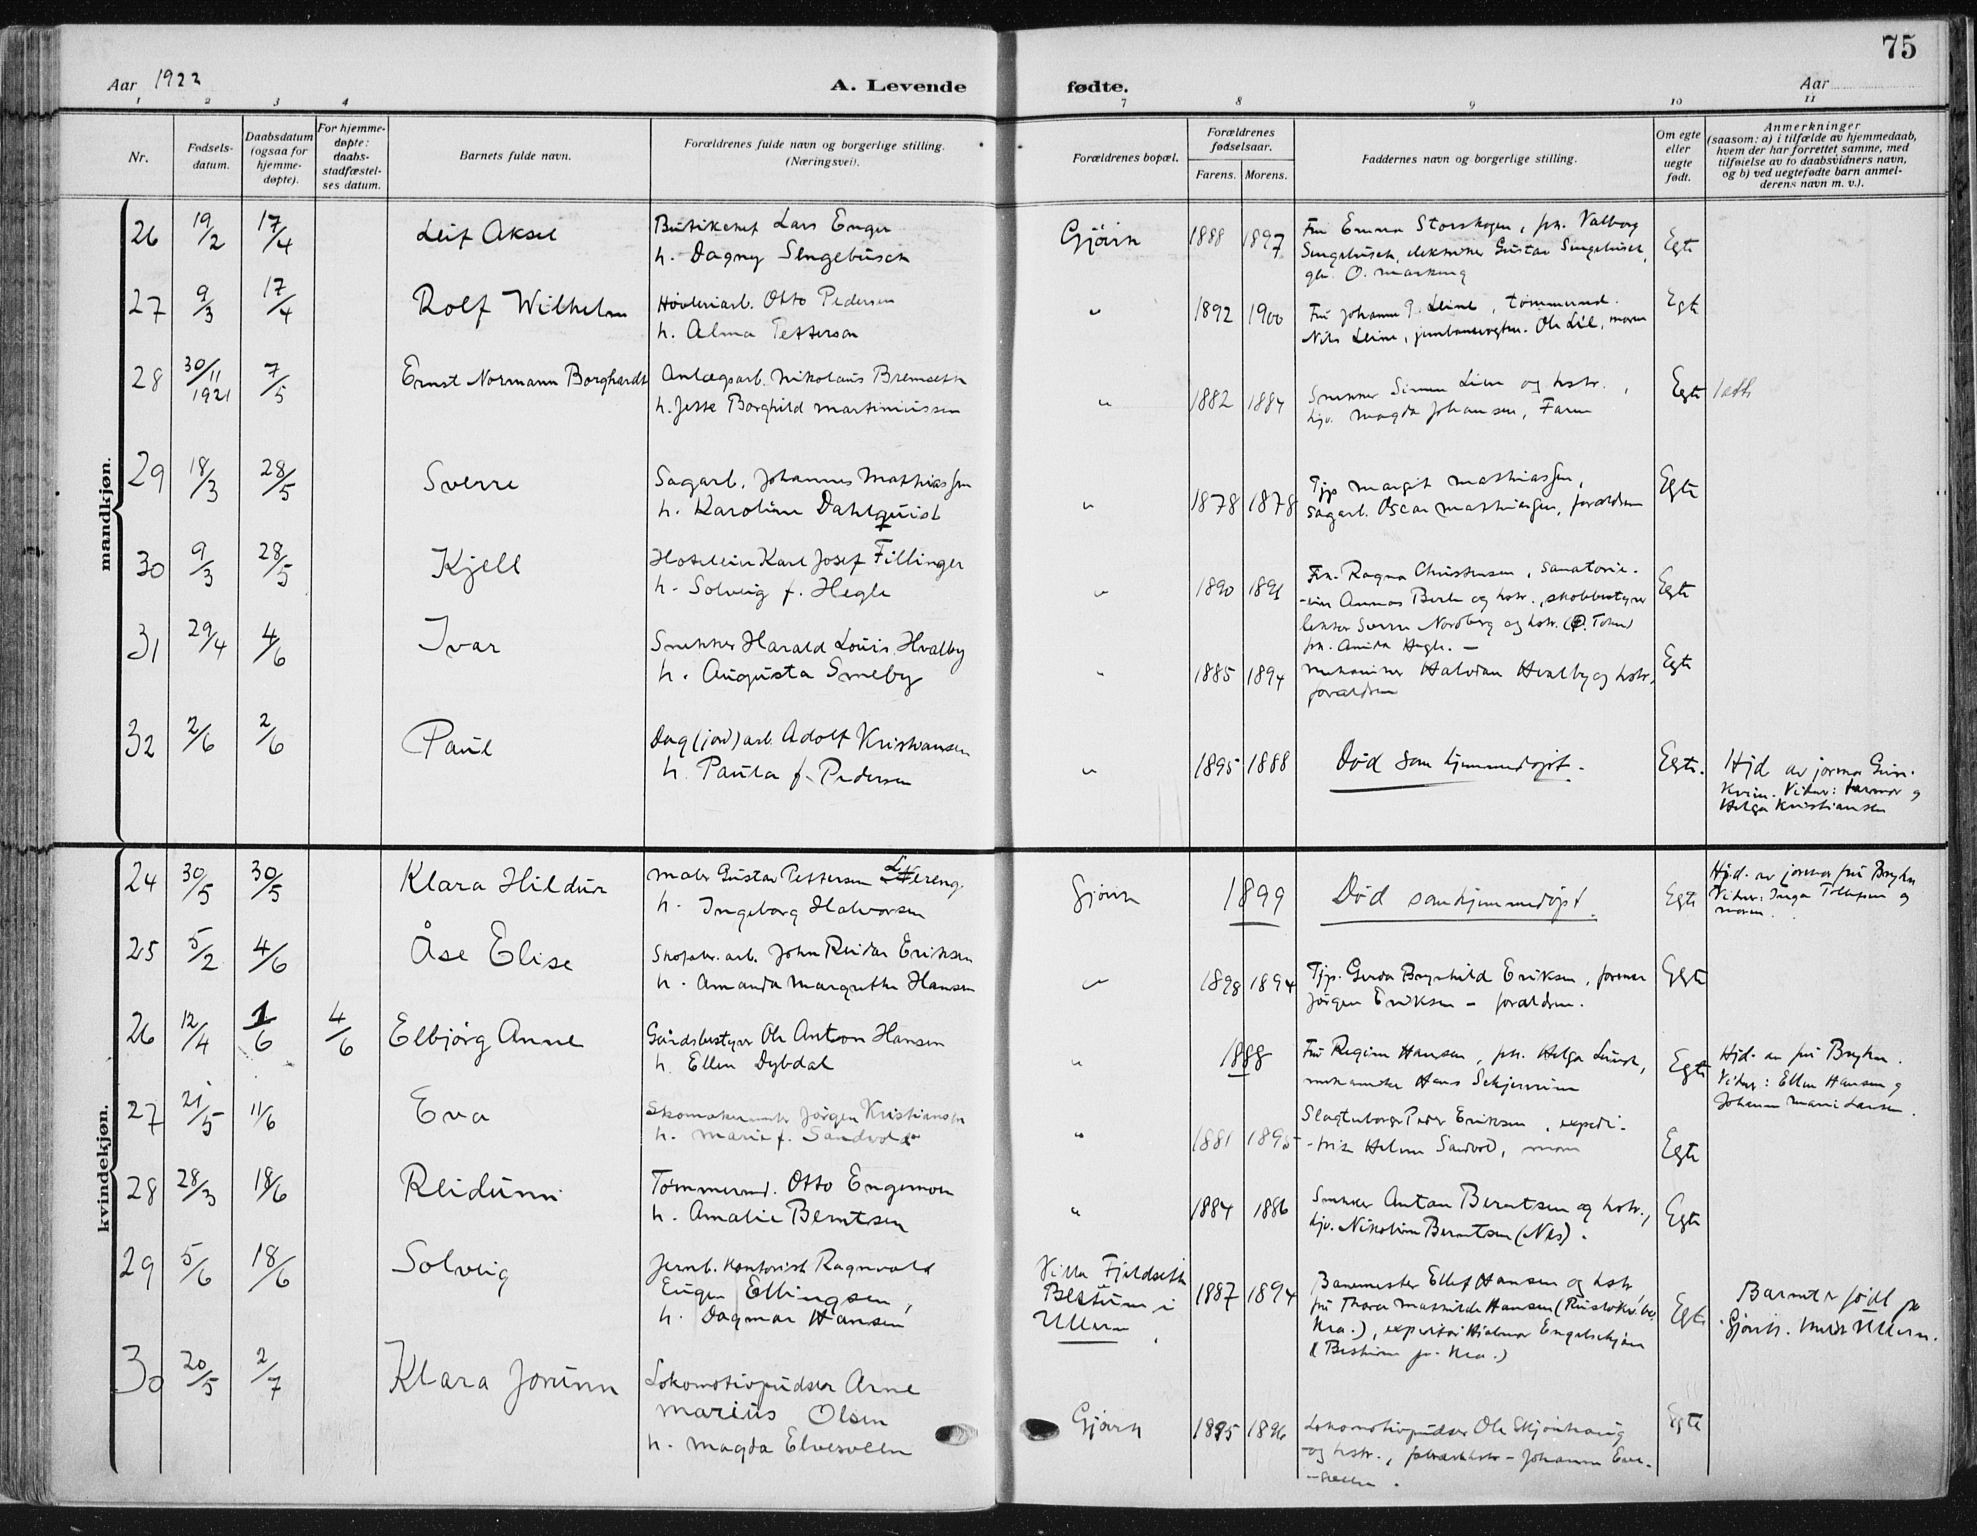 75
Aar 1922
A. Levende fødte.
Aar
1 2 3 4 7 8 9 10 11
Nr.
Fødsels-
datum.
Daabsdatum
(ogsaa for
hjemme-
døpte).
For hjemme-
døpte:
daabs-
stadfæstel-
ses datum.
Barnets fulde navn.
Forældrenes fulde navn og borgerlige stilling.
(Næringsvei).
Forældrenes bopæl.
Forældrenes
fødselsaar.
Farens. Morens.
Faddernes navn og borgerlige stilling.
Om egte
eller
uegte
født.
Anmerkninger
(saasom: a) i tilfælde av hjemmedaab,
hvem der har forrettet samme, med
tilføielse av to daabsvidners navn,
og b) ved uegtefødte barn anmel-
derens navn m. v.).
mandkjøn.
26 19/2 17/4 Leif Aksel Lars Enger
h. Dagny Sengebusch
Gjøvik 1888 1897 Fru Emma Storskogen, frk. Valborg
Sengebusch, elektriker Gustav Sengebusch,
Egte
27 9/3 17/4 Rolf Wilhelm Høvleriarb. Otto Pedersen
h. Alma Petterson
" 1892 1900 Fru Johanne
Nils Ole
Egte
28 30/11 1921 7/5 Ernst Normann Borghardt Anlægsarb. Nikolaus Bremseth
h. Jette Borghild Martiniussen
" 1882 1884 Snekker Simen Lien og hstr.,
Magda Johansen, Faren
Egte
29 18/3 28/5 Sverre Sagarb. Johannes Mathiassen
h. Karoline Dahlquist
" 1878 1878 Tjp Margit Mathiassen,
sagarb. Oscar Mathiassen, forældren
Egte
30 9/3 28/5 Kjell Hoteleier Karl Josef Fillinger
h. Solveig f. Hegle
" 1890 1891 Frk. Ragna Christensen, sanatorie-
-eier og hstr.,
lektor Sverre Nordberg og hstr.
frk. Hegle. -
Egte
31 29/4 4/6 Ivar Snekker Harald Louis Hvalby
h. Augusta Smeby
" 1885 1894 mekaniker Halvdan Hvalby og hstr.,
forældren
Egte
32 2/6 2/6 Paul Dag(jord)arb. Adolf Kristiansen
h. Paula f. Pedersen
" 1895 1888 Død som hjemmedøpt.
Egte. Hjd av jormor
Vidner: farmor og
Helga Kristiansen
kvindekjøn.
24 30/5 30/5 Klara Hildur Maler Gustav Pettersen
h. Ingeborg Halvorsen
Gjøvik 1899 Død som hjemmedøpt.
Egte Hjd. av jormor fru Bryhn
Vidner: Inga Tollefsen og
moren.
25 5/2 4/6 Åse Elise Skofabr. arb. John Reidar Eriksen
h. Amanda Margrethe Hansen
" 1898 1894 Tjp. Gerda Brynhild Eriksen, farmor
Jörgen Eriksen - forældren.
Egte
26 12/4 1/6 4/6 Elbjörg Anne Gårdsbestyrer Ole Anton Hansen
h. Ellen Dybdal
" 1888 Fru Regine Hansen, frk. Helga Lund,
Hans
Egte Hjd. av fru Bryhn.
Vidner: Ellen Hansen og
Johanne Marie Larsen.
27 21/5 11/6 Eva Jörgen Kristiansen
h. Marie f. Sandvold
" 1881 1895 Peder Eriksen, expedi-
-trise Helene Sandvold, mor
Egte
28 28/3 18/6 Reidunn Tømmermd. Otto Engemoen
h. Amalie Berntsen
" 1884 1886 Snekker Anton Berntsen og hstr.,
Nikoline Berntsen (Nes).
Egte
29 5/6 18/6 Solveig Jernb. kontorist Ragnvald
Eugen Ellingsen,
h. Dagmar Hansen
Villa Fjeldseth
Bestum i
Ullern
1887 1894 Banemester Ellef Hansen og hstr.
fru Thora Mathilde Hansen
Kra.), expeditør Hjalmar Engelschjøn
(Bestum pr. Kra.)
Egte Barnet er født på
Gjøvik. Meldt Ullern.
30 20/5 2/7 Klara Jorunn Lokomotivpudser Arne
Marius Olsen
h. Magda Elvesveen
Gjøvik 1895 1896 Lokomotivpudser Ole Skjönhaug
og hstr., - Johanne Elve-
-sveen.
Egte